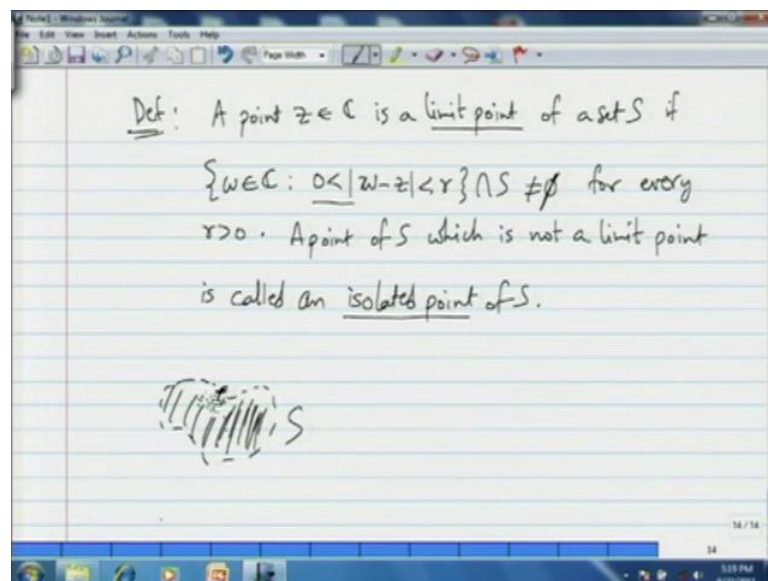 Note1 - Windows Journal
File Edit View Insert Actions Tools Help
Page Width
Def: A point z ∈ ℂ is a limit point of a set S if
{w ∈ ℂ : 0 < |w - z| < r} ∩ S ≠ ∅ for every
r > 0. A point of S which is not a limit point
is called an isolated point of S.
S
14 / 14
14
3:19 PM